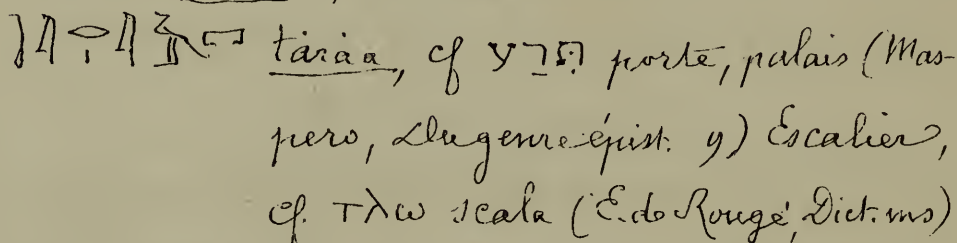 táráa, cf תרע porte, palais (Mas-
pero, Du genre épist. 9) Escalier,
cf. ⲧⲗⲱ scala (E. de Rougé, Dict. ms)